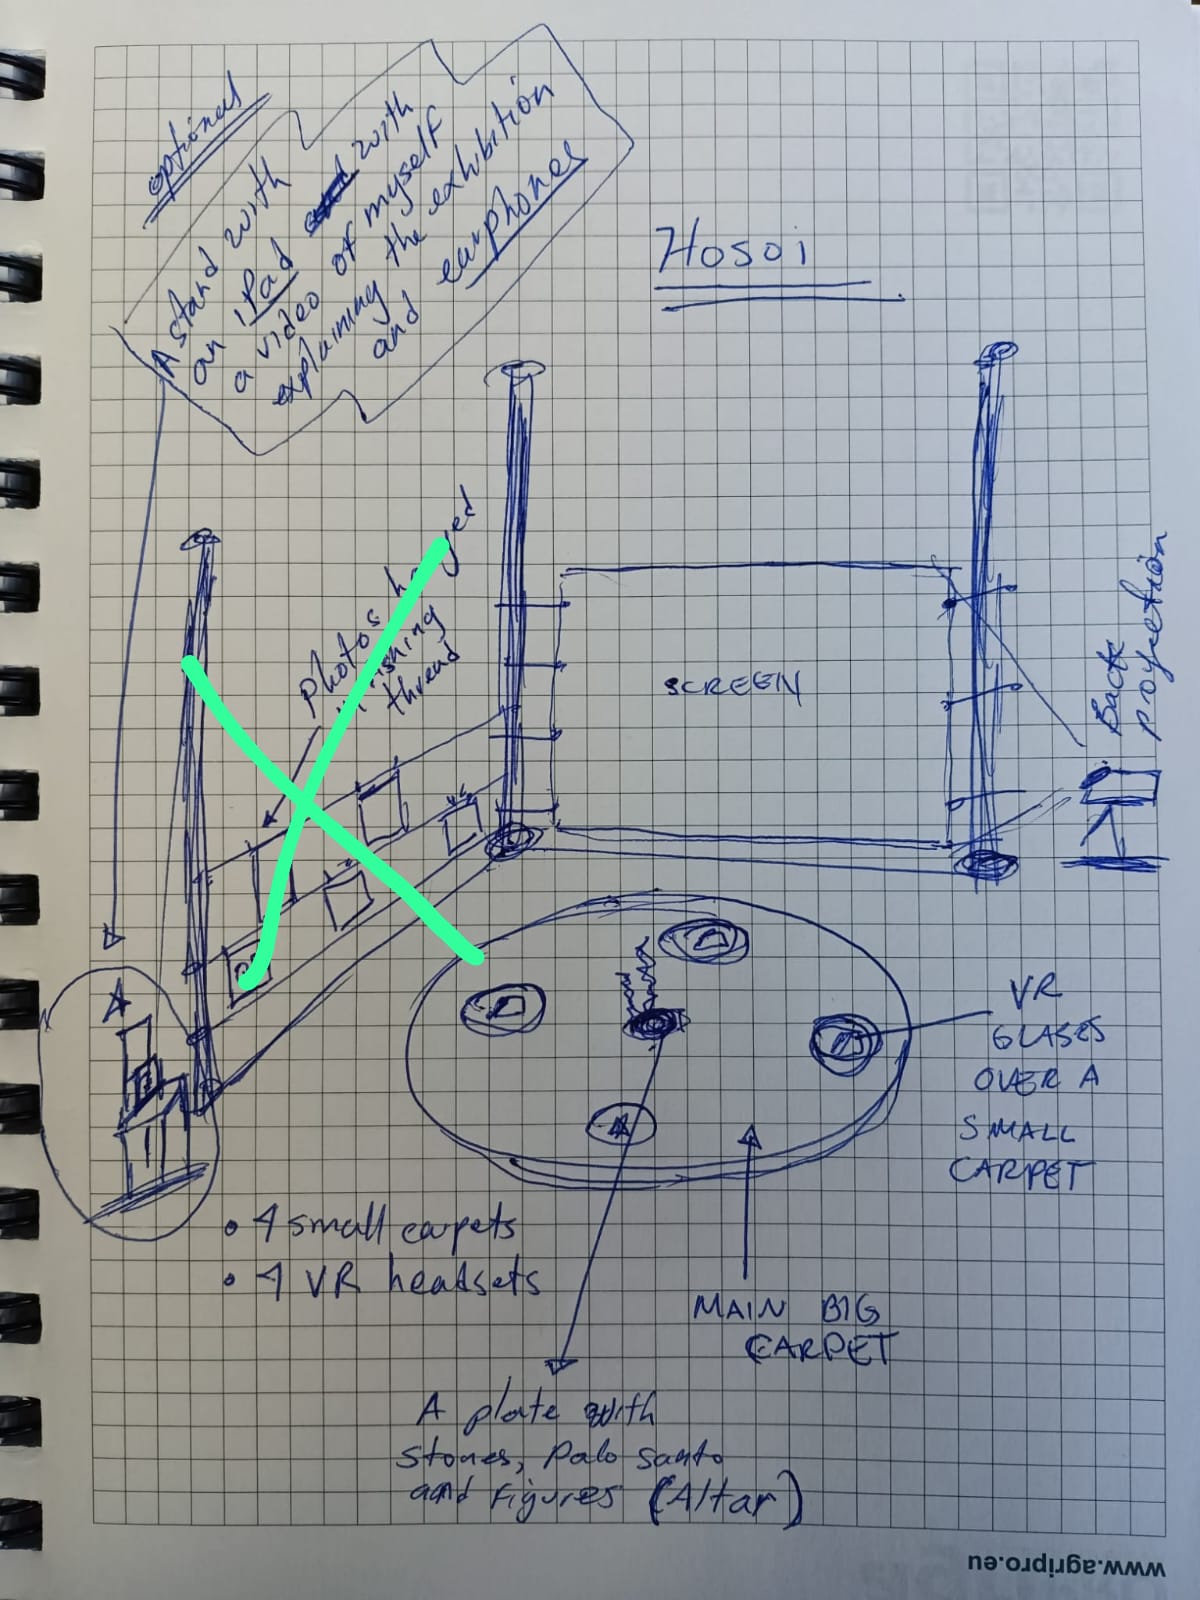 optional
A stand with
an iPad with
a video of myself
explaining the exhibition
and earphones
Hosoi
photos hanged
w fishing
thread
SCREEN
Back
projection
A
VR
GLASES
OVER A
SMALL
CARPET
• 4 small carpets
• 4 VR headsets
MAIN BIG
CARPET
A plate with
stones, Palo santo
and Figures (Altar)
www.agripro.eu